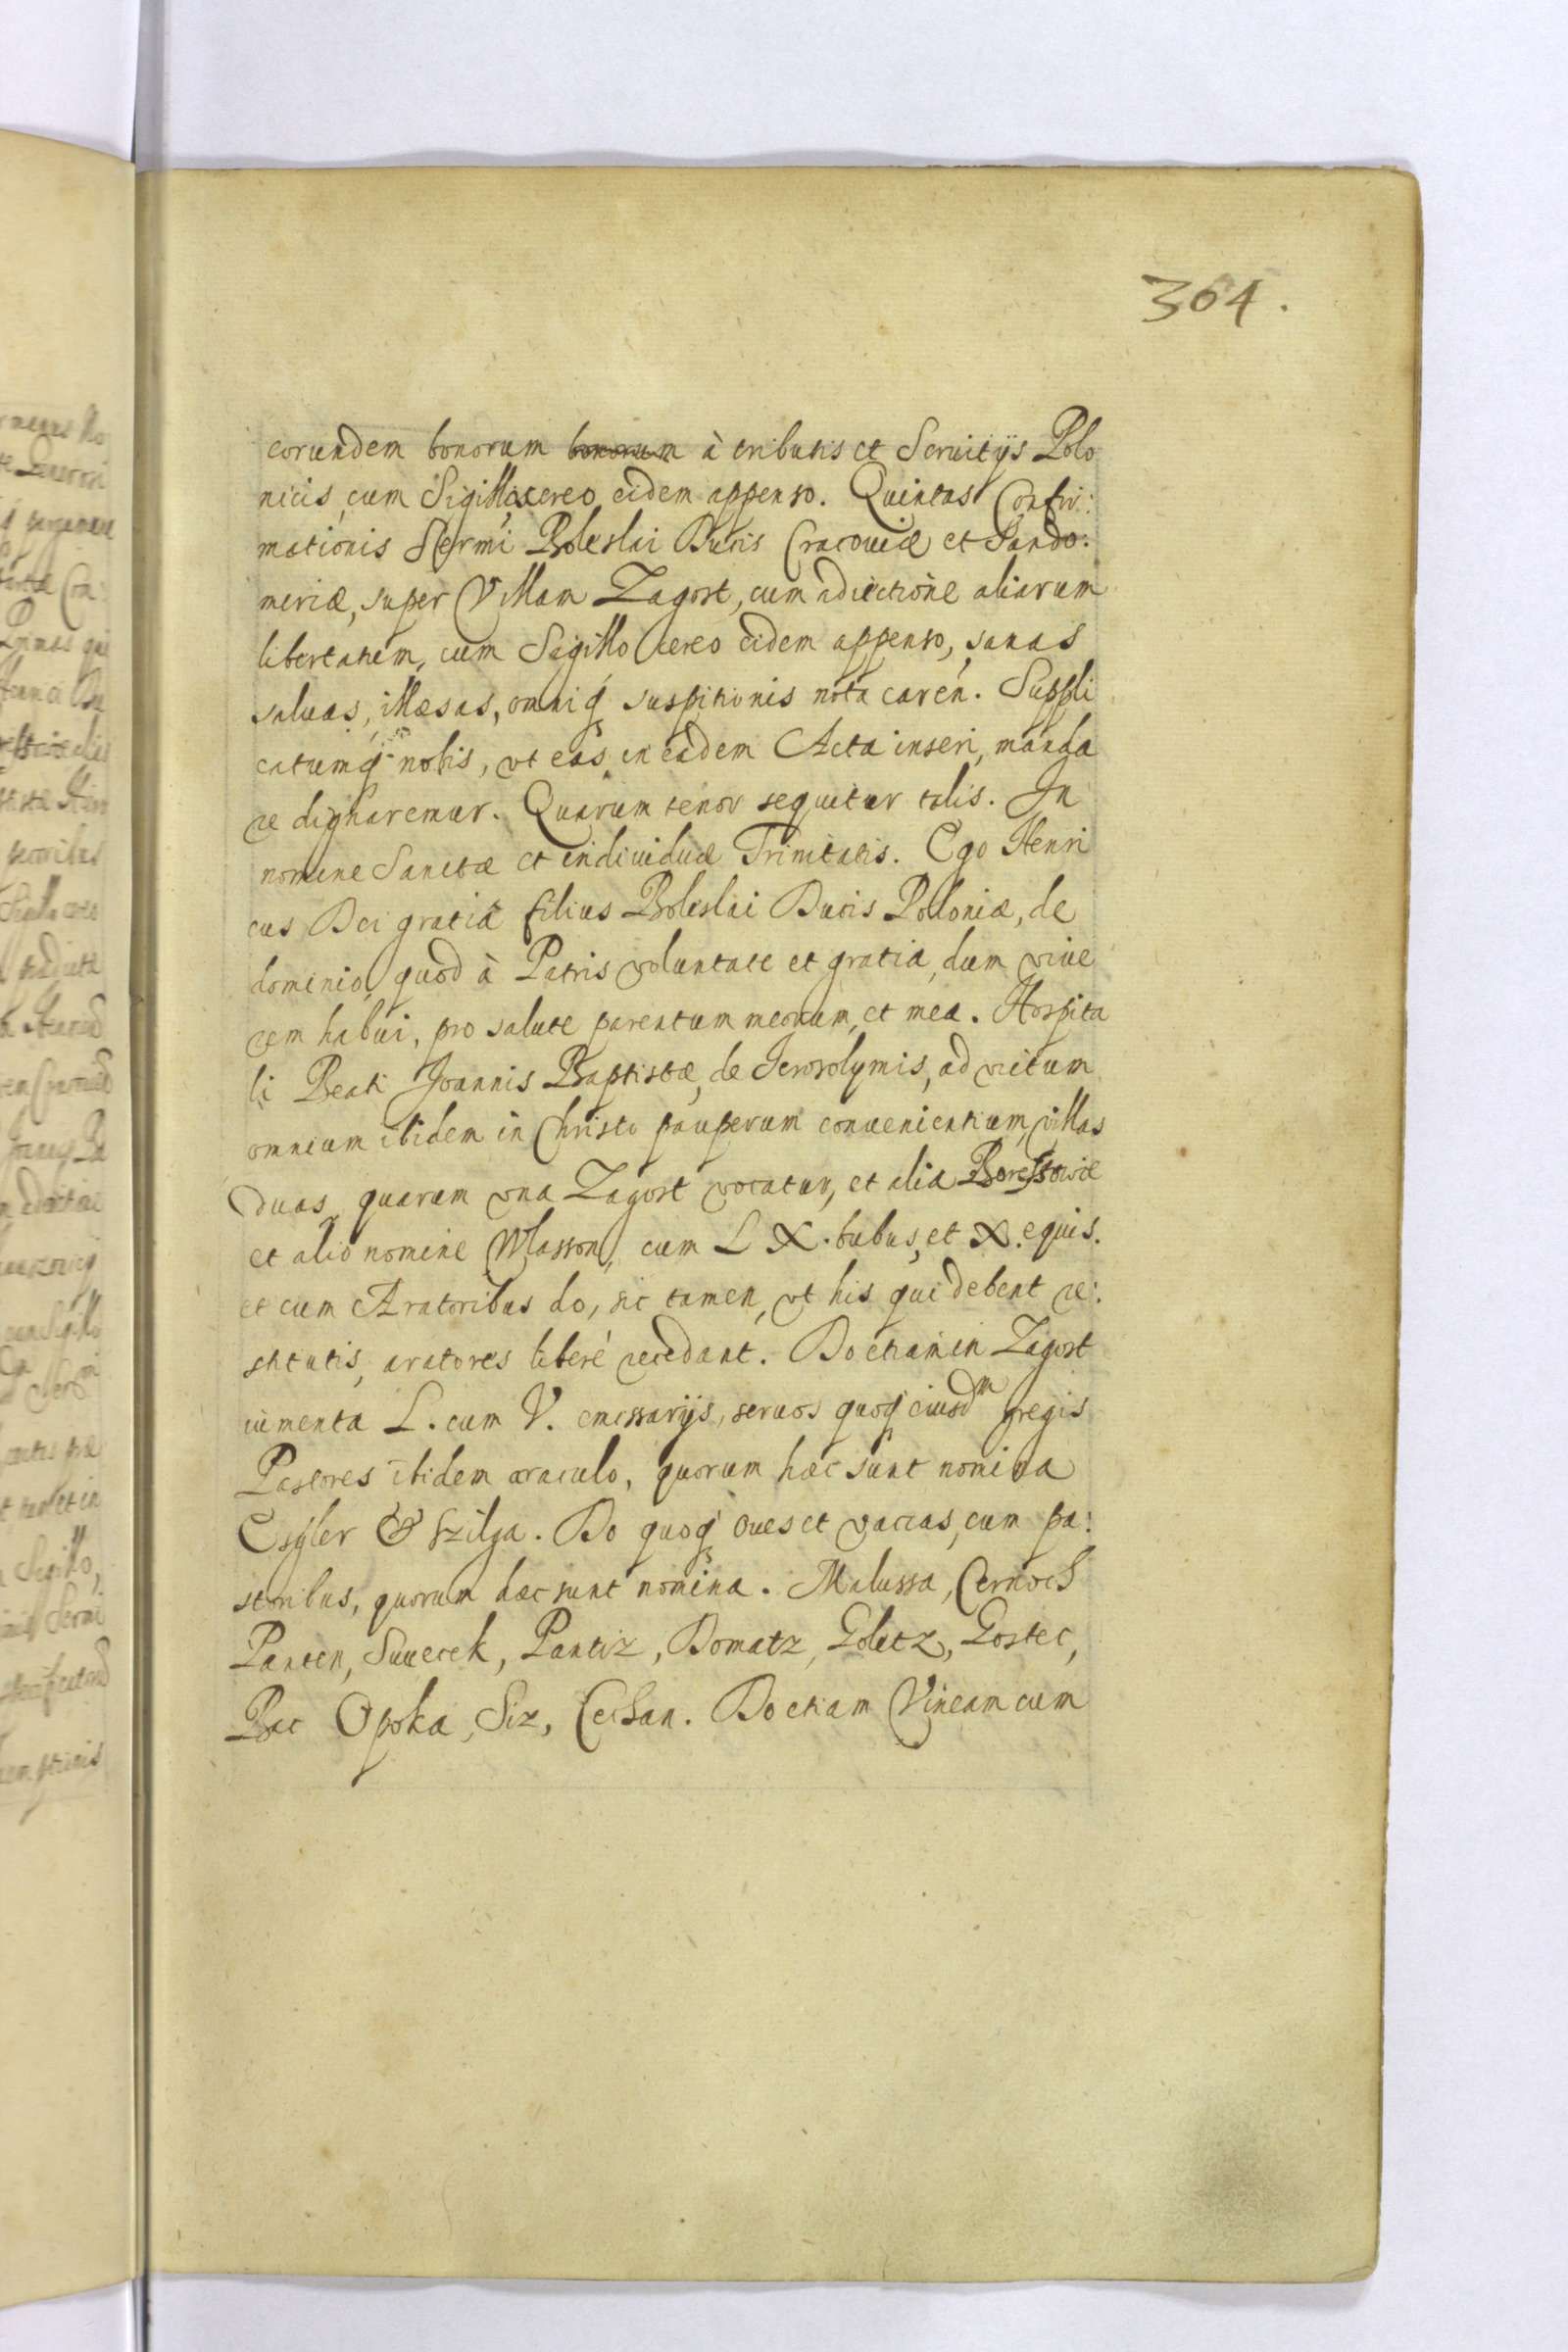 364.
eorundem bonorum bonorum à tributis et Seruitijs Polo
nicis, cum Sigillo cereo eidem appenso. Quintas Confir:
mationis Sermi Boleslai Ducis Cracouiæ et Sando:
meriæ, super Villam Zagost, cum adiectione aliarum
libertatum, cum Sigillo cereo eidem appenso, sanas
saluas, illæsas, omniq suspitionis nota caren. Suppli
catumq nobis, vt eas in eadem Acta inseri, manda
re dignaremur. Quarum tenor sequitur talis. In
nomine Sanctæ et indiuiduæ Trinitatis. Ego Henri
cus Dei gratia filius Boleslai Ducis Poloniæ, de
dominio, quod à Patris voluntate et gratia, dum viue
rem habui, pro salute parentum meorum, et mea. Hospita
li Beati Joannis Baptistæ, de Jerosolymis, ad victum
omnium ibidem in Christo pauperum conuenientium, villas
duas, quarum vna Zagost vocatur, et alia Boressowie
et alio nomine Wlasson, cum L X. bubus, et X. equis.
et cum Aratoribus do, sic tamen, vt his qui debent re:
stitutis, aratores liberè recedant. Do etiam in Zagost
iumenta L. cum V. emissarijs, seruos quoq eiusdm gregis
Pastores ibidem oraculo, quorum hæc sunt nomina
Csyler & Szilga. Do quoq oues et vaccas, cum pa:
storibus, quorum hæc sunt nomina. Malussa, Cernoch
Panten, Suuecek, Pantiz, Domatz, Goletz, Gostec,
Bac Opoka, Siz, Cechan. Do etiam Vineam cum